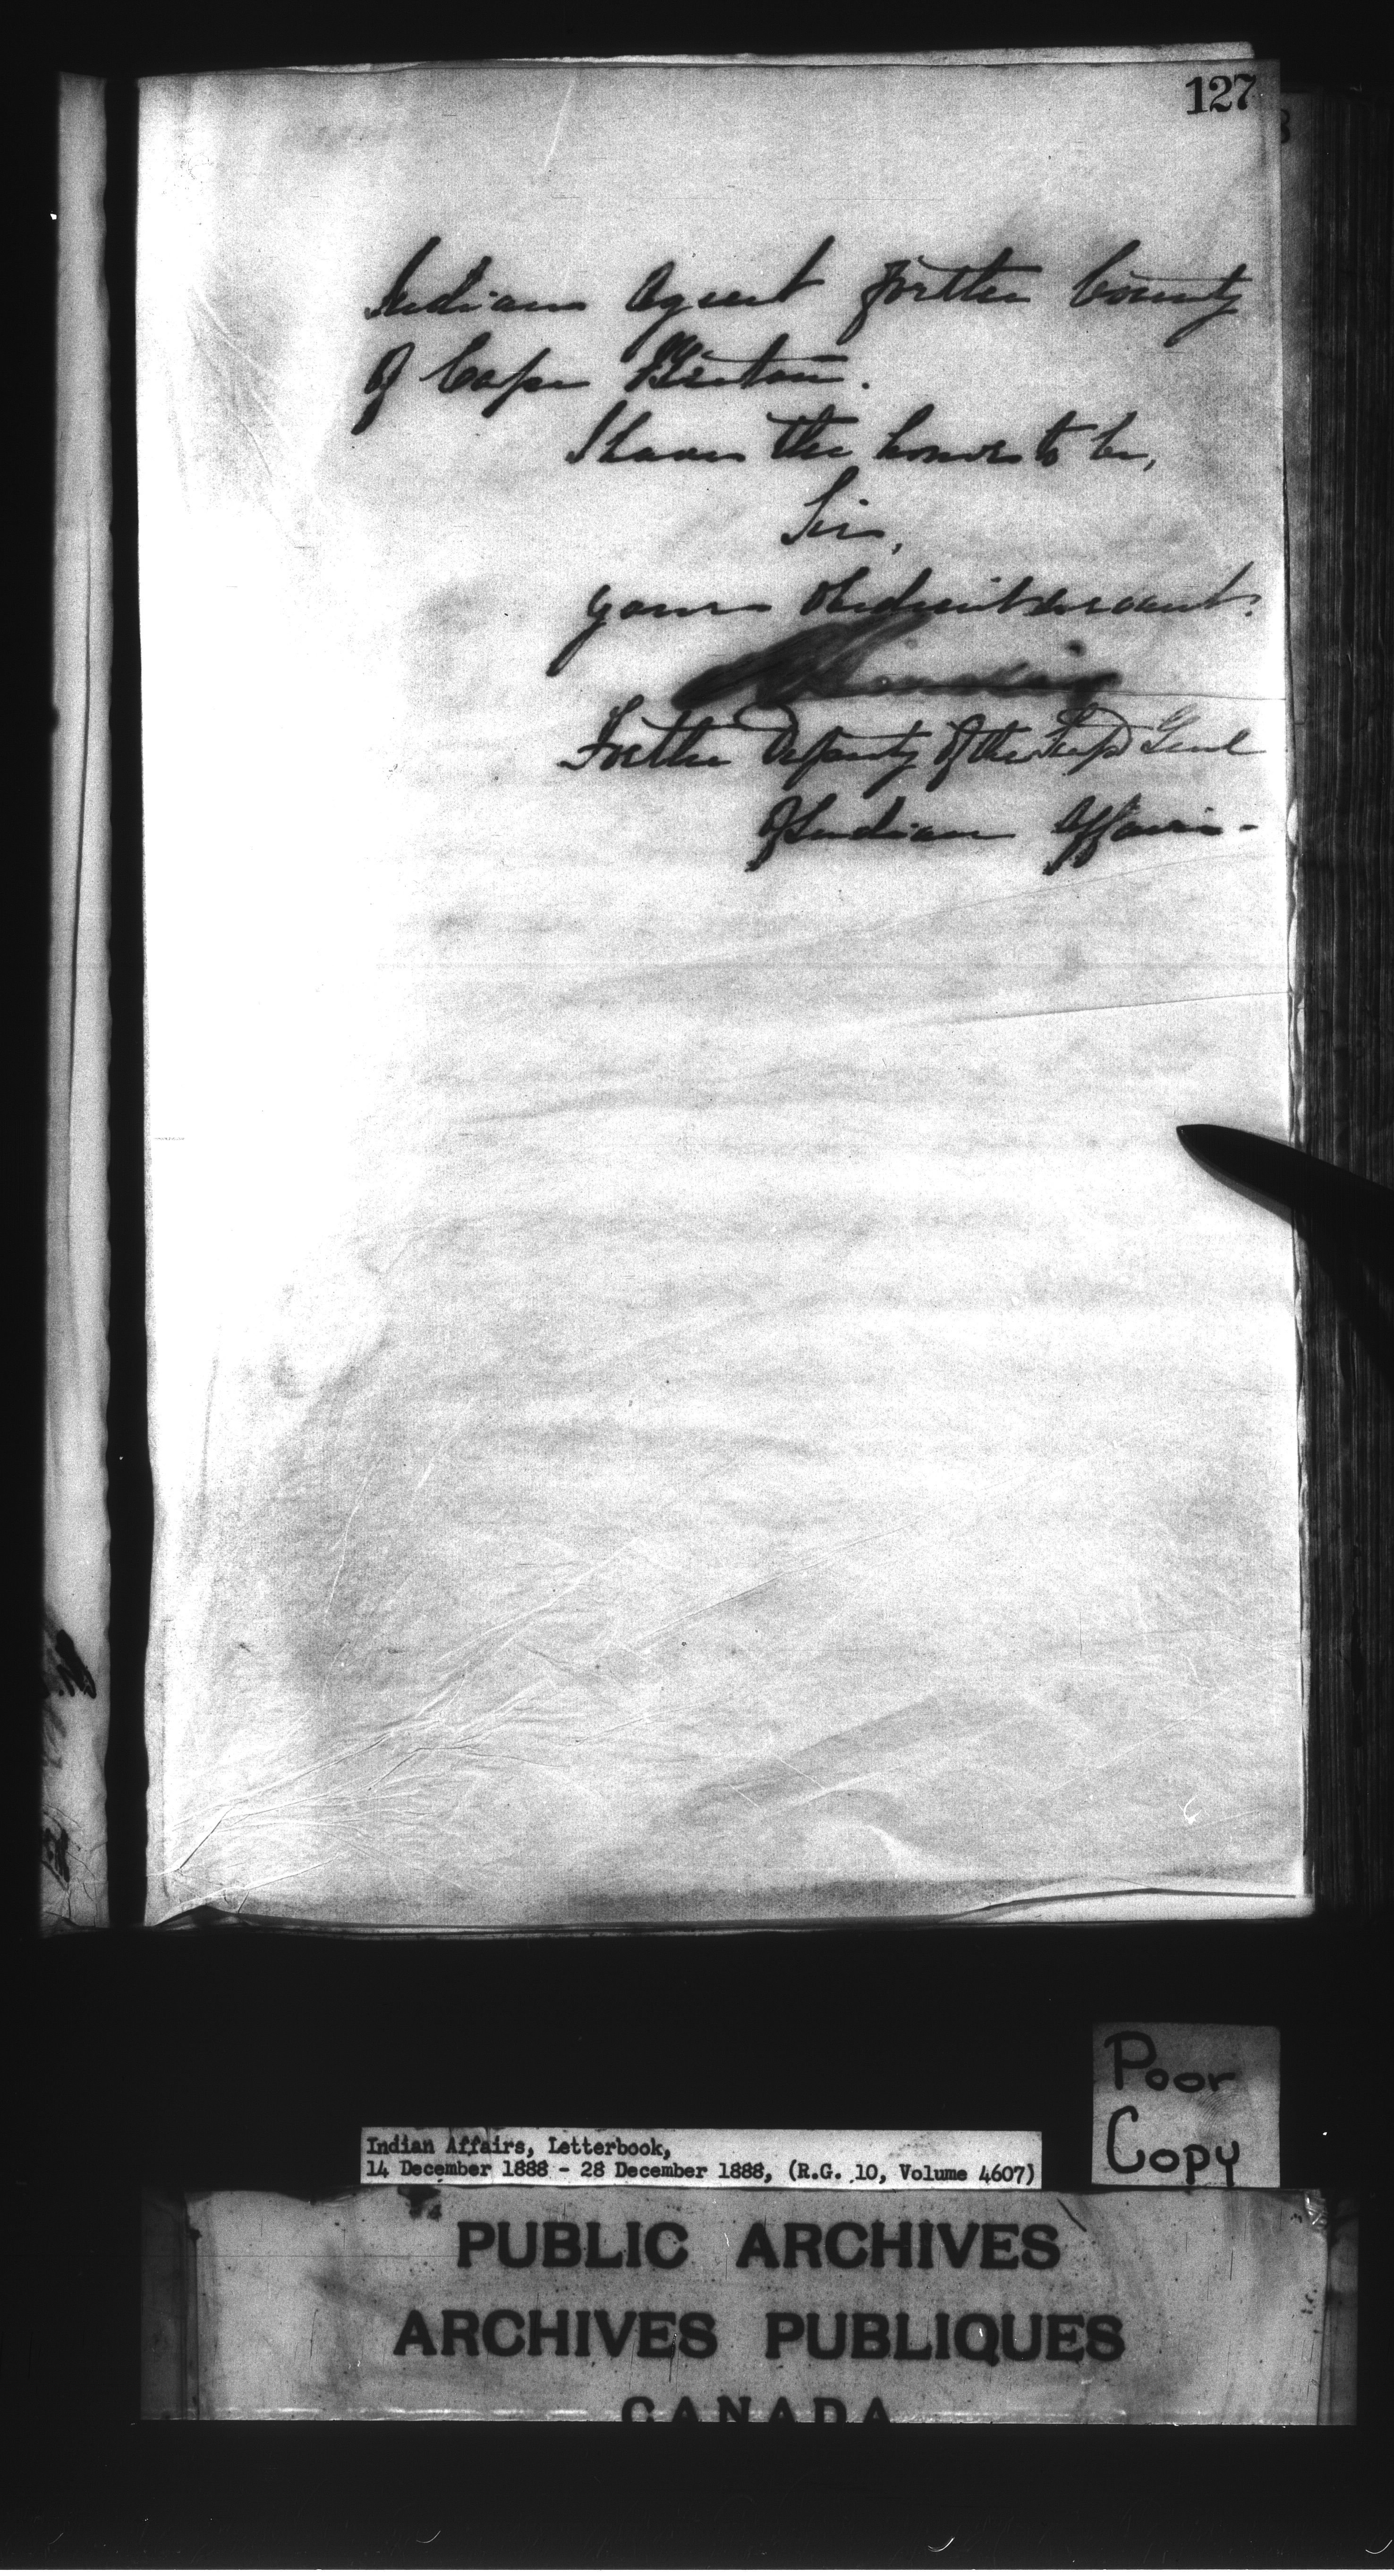 127
Indian Agent for the County
of Cape Breton.
I have the honor to be,
Sir,
Your obedient servant.
For the Deputy of the Supt Genl
Of Indian Affairs -
Poor
Copy
Indian Affairs, Letterbook,
14 December 1888 - 28 December 1888, (R.G. 10, Volume 4607)
PUBLIC ARCHIVES
ARCHIVES PUBLIQUES
CANADA